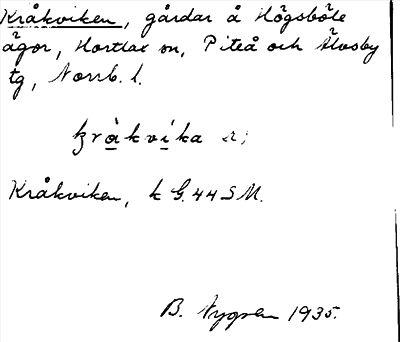 Kråkviken, gårdar å Högsböle
ägor, Hortlax sn, Piteå och Älvsby
tg, Norrb. l.
kràkvíka
Kråkviken, k G. 44 S M.
B. Nygren 1935.